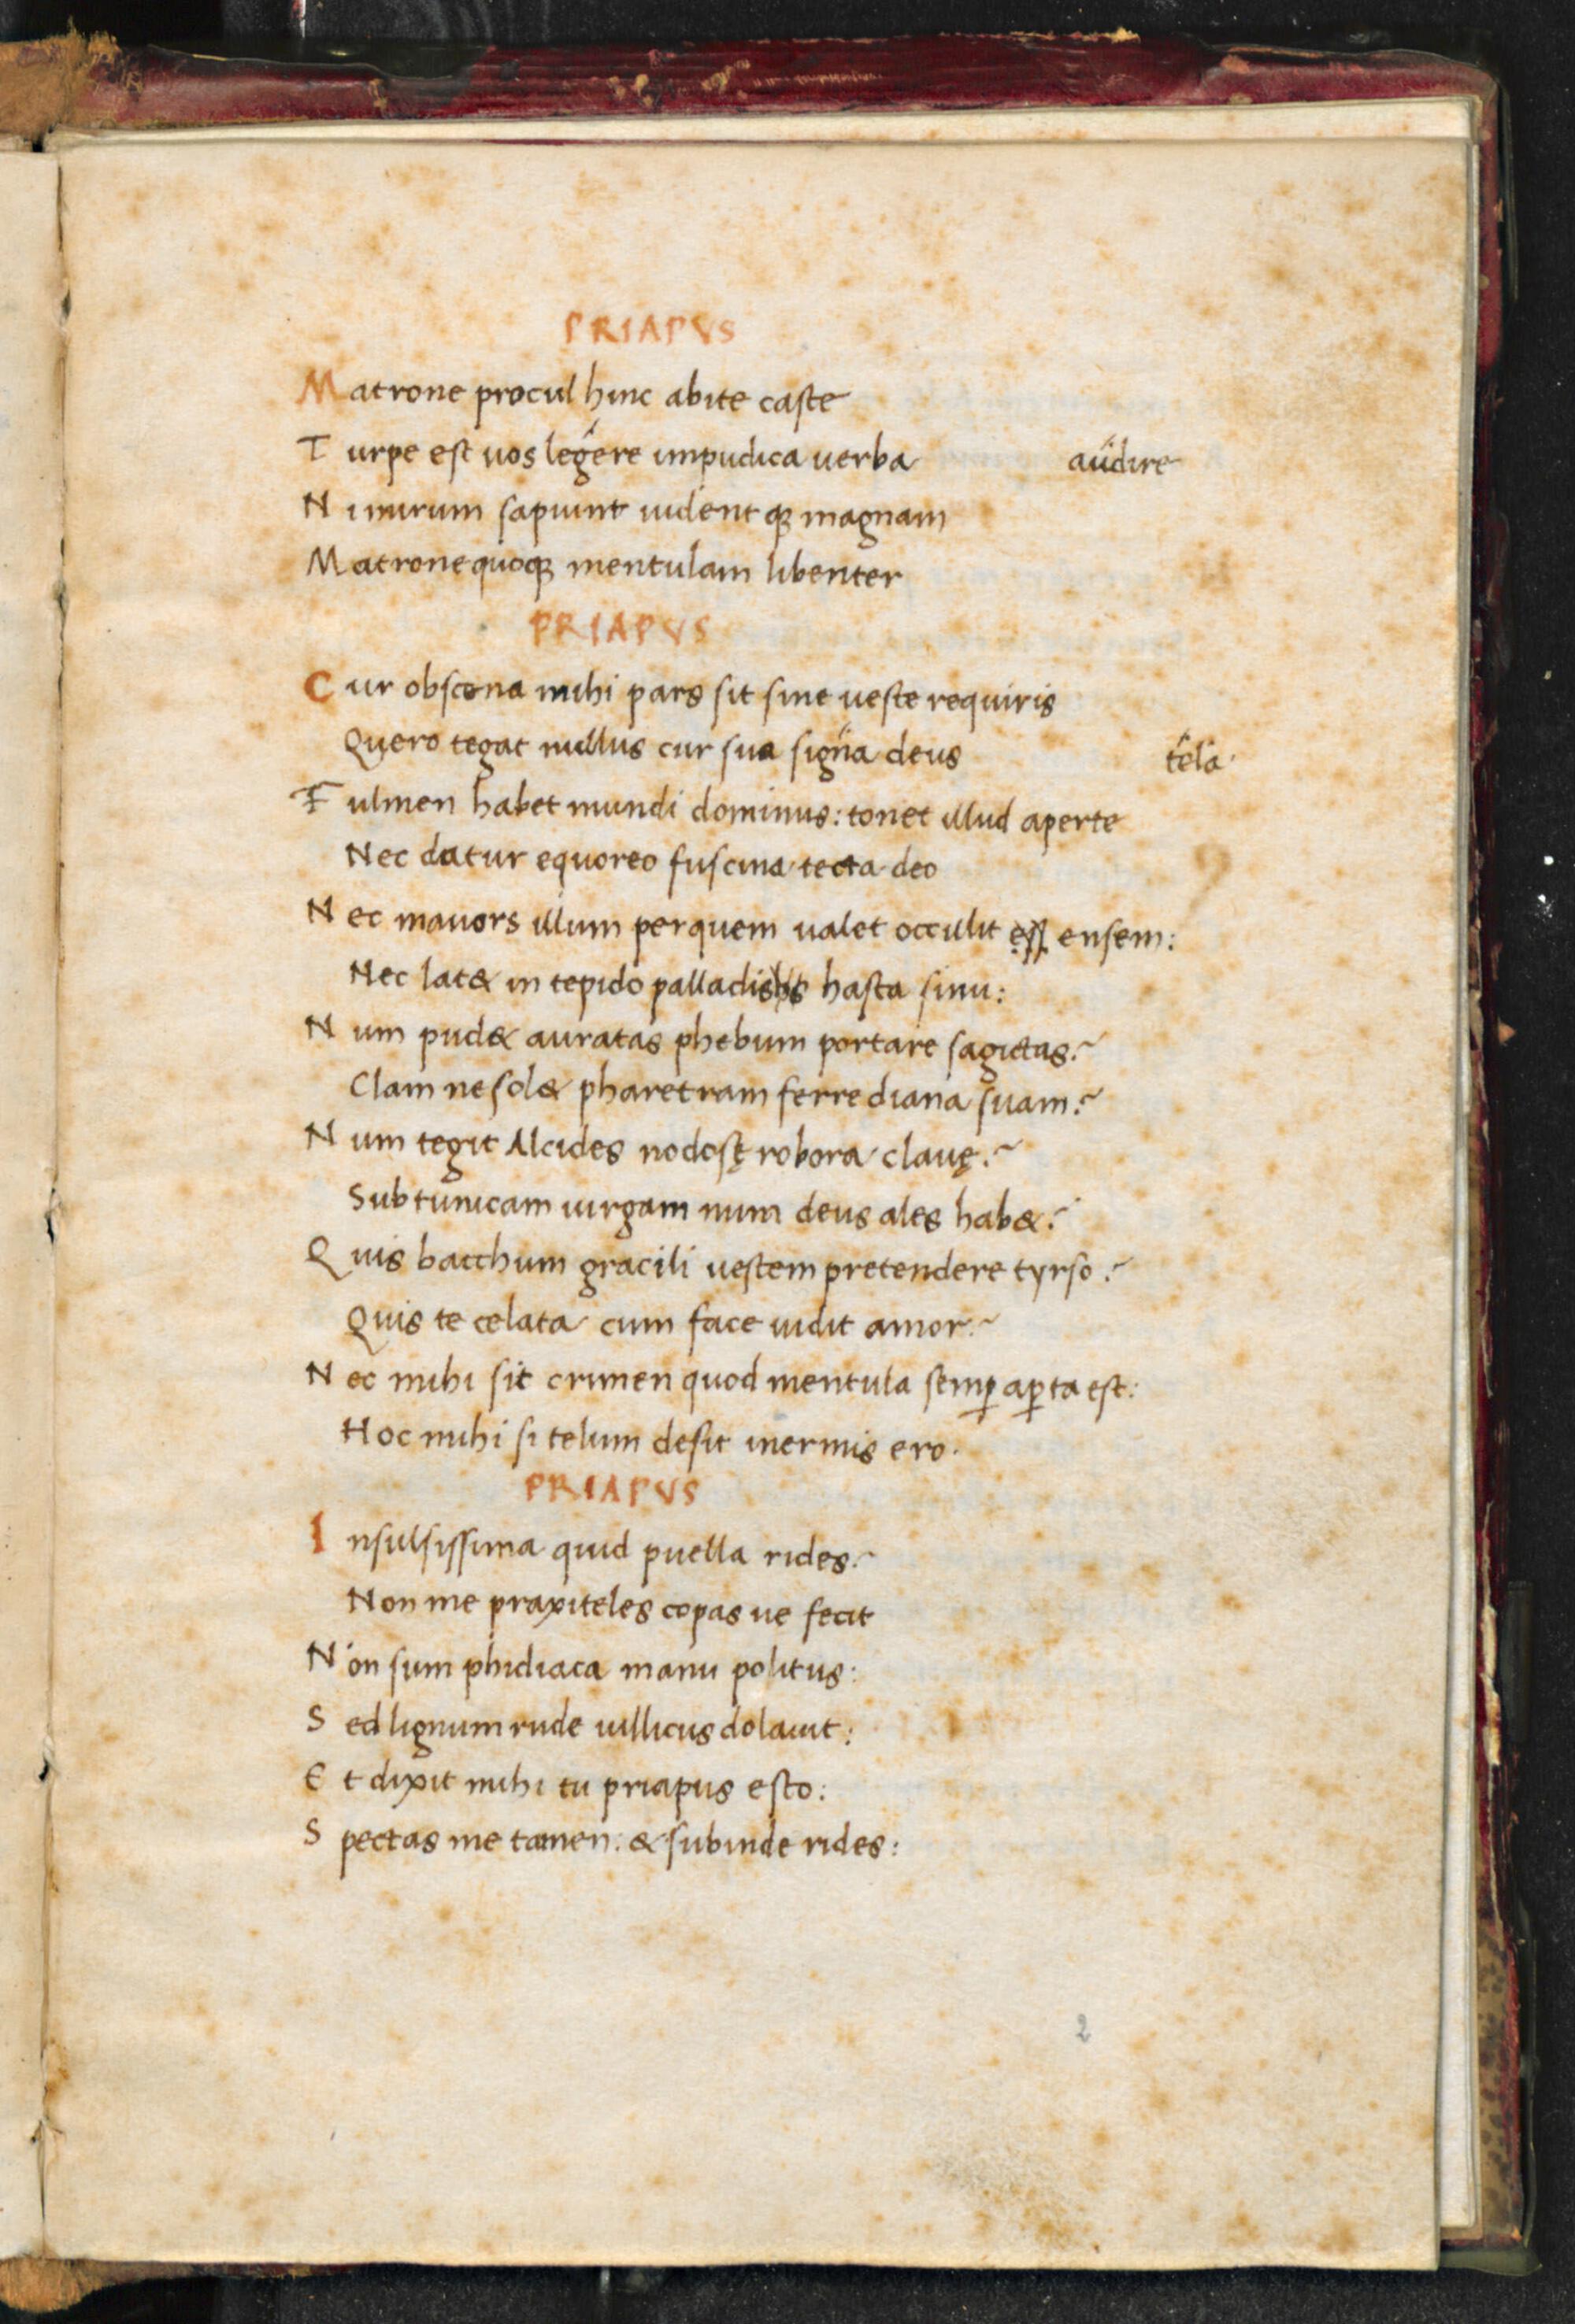 PRIAPVS
Matrone procul hinc abite caste
Turpe est uos legere impudica uerba audire
Nimirum sapiunt uidentqꝫ magnam
Matrone quoqꝫ mentulam libenter
PRIAPVS
Cur obscena mihi pars sit sine ueste requiris
Quero tegat nullus cur sua signa deus tela
Fulmen habet mundi dominus: tonet illud aperte
Nec datur equoreo fuscina tecta deo
Nec mauors illum per quem ualet occulit ensem:
Nec lat& in tepido palladis hasta sinu:
Num pud& auratas phebum portare sagittas?
Clam ne sol& pharetram ferre diana suam?
Num tegit Alcides nodosę robora clauę?
Sub tunicam uirgam num deus ales hab&?
Quis bacchum gracili uestem pretendere tyrso?
Quis te celata cum face uidit amor?
Nec mihi sit crimen quod mentula semꝑ aꝑta est:
Hoc mihi si telum desit inermis ero.
PRIAPVS
Insulsissima quid puella rides?
Non me praxiteles copas ue fecit
Non sum phidiaca manu politus:
Sed lignum rude uillicus dolauit:
Et dixit mihi tu priapus esto:
Spectas me tamen: & subinde rides:
2